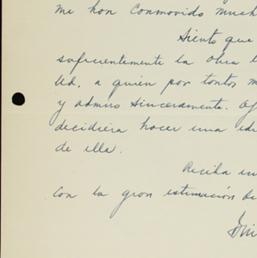 me han conmovido much
Siento que
suficientemente la obra l
Ud. a quien por tantos m
y admiro sinceramente. Oj
decidiera hacer una edi
de ella.
Reciba un
con la gran estimación de